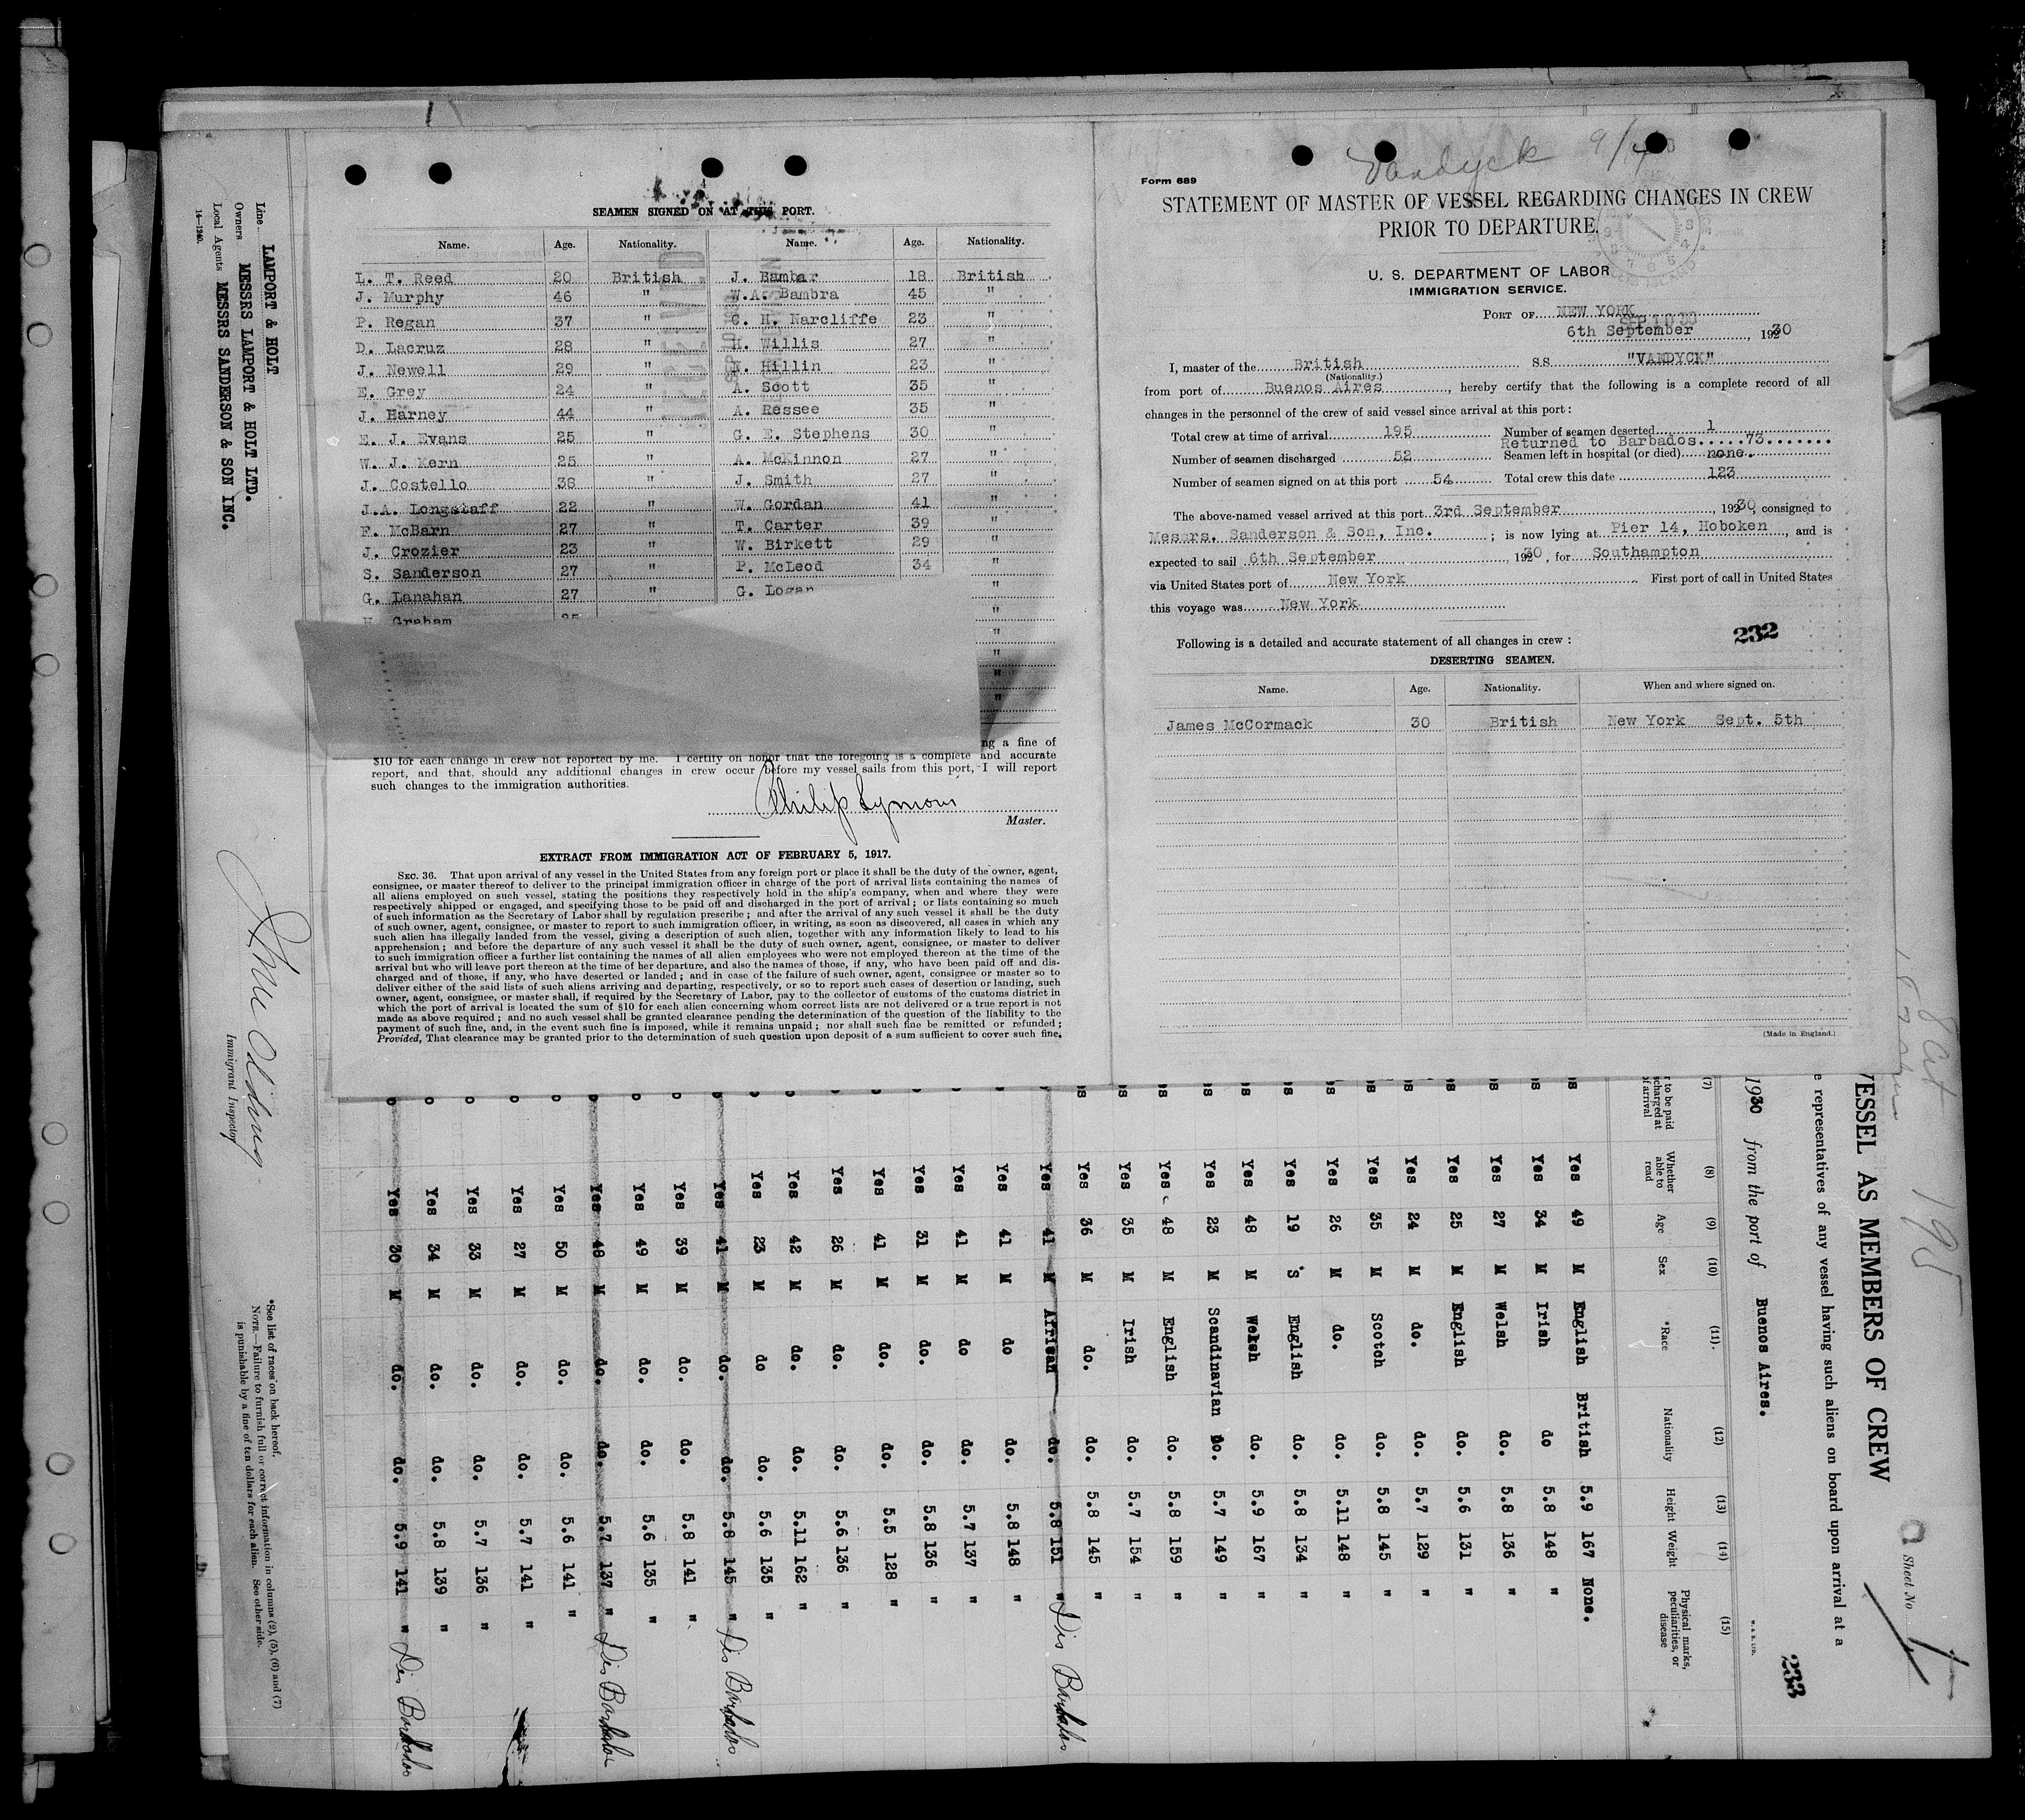 SEAMEN SIGNED ON AT THIS PORT.
Name. Age. Nationality. Name. Age. Nationality.
L. T. Reed 20 British J. Bambar 18 British
J. Murphy 46 " W.A. Bambra 45 "
P. Regan 37 " C. H. Narcliffe 23 "
D. Lacruz 28 " H. Willis 27 "
J. Newell 29 " N. Hillin 23 "
E. Grey 24 " A. Scott 35 "
J. Harney 44 " A. Ressee 35 "
E. J. Evans 25 " G. E. Stephens 30 "
W. J. Kern 25 " A. McKinnon 27 "
J. Costello 38 " J. Smith 27 "
J.A. Longstaff 22 " W. Gordan 41 "
F. McBarn 27 " T. Carter 39 "
J. Crozier 23 " W. Birkett 29 "
S. Sanderson 27 " P. McLeod 34 "
G. Lanahan 27 " G. Logan "
H. Graham "
"
"
"
"
ng a fine of
$10 for each change in crew not reported by me. I certify on honor that the foregoing is a complete and accurate
report, and that, should any additional changes in crew occur before my vessel sails from this port, I will report
such changes to the immigration authorities.
Philip Symons
Master.
EXTRACT FROM IMMIGRATION ACT OF FEBRUARY 5, 1917.
SEC. 36. That upon arrival of any vessel in the United States from any foreign port or place it shall be the duty of the owner, agent,
consignee, or master thereof to deliver to the principal immigration officer in charge of the port of arrival lists containing the names of
all aliens employed on such vessel, stating the positions they respectively hold in the ship's company, when and where they were
respectively shipped or engaged, and specifying those to be paid off and discharged in the port of arrival; or lists containing so much
of such information as the Secretary of Labor shall by regulation prescribe; and after the arrival of any such vessel it shall be the duty
of such owner, agent, consignee, or master to report to such immigration officer, in writing, as soon as discovered, all cases in which any
such alien has illegally landed from the vessel, giving a description of such alien, together with any information likely to lead to his
apprehension; and before the departure of any such vessel it shall be the duty of such owner, agent, consignee, or master to deliver
to such immigration officer a further list containing the names of all alien employees who were not employed thereon at the time of the
arrival but who will leave port thereon at the time of her departure, and also the names of those, if any, who have been paid off and dis-
charged and of those, if any, who have deserted or landed; and in case of the failure of such owner, agent, consignee or master so to
deliver either of the said lists of such aliens arriving and departing, respectively, or so to report such cases of desertion or landing, such
owner, agent, consignee, or master shall, if required by the Secretary of Labor, pay to the collector of customs of the customs district in
which the port of arrival is located the sum of $10 for each alien concerning whom correct lists are not delivered or a true report is not
made as above required; and no such vessel shall be granted clearance pending the determination of the question of the liability to the
payment of such fine, and, in the event such fine is imposed, while it remains unpaid; nor shall such fine be remitted or refunded;
Provided, That clearance may be granted prior to the determination of such question upon deposit of a sum sufficient to cover such fine.
Vandyck 9/
Form 689
STATEMENT OF MASTER OF VESSEL REGARDING CHANGES IN CREW
PRIOR TO DEPARTURE.
U. S. DEPARTMENT OF LABOR
IMMIGRATION SERVICE.
PORT OF NEW YORK
6th September, 1930
I, master of the British S.S. "VANDYCK"
(Nationality.)
from port of Buenos Aires, hereby certify that the following is a complete record of all
changes in the personnel of the crew of said vessel since arrival at this port:
Total crew at time of arrival 195 Number of seamen deserted 1
Returned to Barbados.....73.......
Number of seamen discharged 52 Seamen left in hospital (or died) none.
Number of seamen signed on at this port 54 Total crew this date 123
The above-named vessel arrived at this port 3rd September, 1930 consigned to
Messrs. Sanderson & Son, Inc.; is now lying at Pier 14, Hoboken, and is
expected to sail 6th September, 1930, for Southampton
via United States port of New York. First port of call in United States
this voyage was New York
232
Following is a detailed and accurate statement of all changes in crew:
DESERTING SEAMEN.
Name. Age. Nationality. When and where signed on.
James McCormack 30 British New York Sept. 5th
(Made in England.)
Sheet No 1
195
VESSEL AS MEMBERS OF CREW
e representatives of any vessel having such aliens on board upon arrival at a
233
1930 from the port of Buenos Aires.
(7) (8) (9) (10) (11) (12) (13) (14) (15)
r to be paid
scharged at
of arrival
Whether
able to
read
Age Sex *Race Nationality Height Weight
Physical marks,
peculiarities, or
disease
Yes 49 M English British 5.9 167 None.
Yes 34 M Irish do 5.8 148 "
Yes 27 M Welsh do. 5.8 136 "
Yes 25 M English do. 5.6 131 "
Yes 24 M do. do. 5.7 129 "
Yes 35 M Scotch do. 5.8 145 "
Yes 26 M do. do. 5.11 148 "
Yes 19 S English do. 5.8 134 "
Yes 48 M Welsh do. 5.9 167 "
Yes 23 M Scandinavian do. 5.7 149 "
Yes 48 M English do. 5.8 159 "
Yes 35 M Irish do. 5.7 154 "
Yes 36 M do. do. 5.8 145 "
Yes 41 M African do. 5.8 151 " Dis Barbados
Yes 41 M do do. 5.8 148 "
Yes 41 M do do. 5.7 137 "
Yes 31 M do. do. 5.8 136 "
Yes 41 M do. do. 5.5 128 "
Yes 26 M do. do. 5.6 136 "
Yes 42 M do. do. 5.11 162 "
Yes 23 M do do. 5.6 135 "
Yes 41 M do. do. 5.8 145 " Dis Barbados
Yes 39 M do. do. 5.8 141 "
Yes 49 M do. do. 5.6 135 "
Yes 48 M do. do. 5.7 137 " Dis Barbados
Yes 50 M do. do. 5.6 141 "
Yes 27 M do. do. 5.7 141 "
Yes 33 M do. do. 5.7 136 "
Yes 34 M do. do. 5.8 139 "
Yes 30 M do. do. 5.9 141 " Dis Barbados
Line LAMPORT & HOLT
Owners MESSRS LAMPORT & HOLT LTD.
Local Agents MESSRS SANDERSON & SON INC.
14—1240.
Immigrant Inspector
*See list of races on back hereof.
NOTE.—Failure to furnish full or correct information in columns (2), (5), (6) and (7)
is punishable by a fine of ten dollars for each alien. See other side.